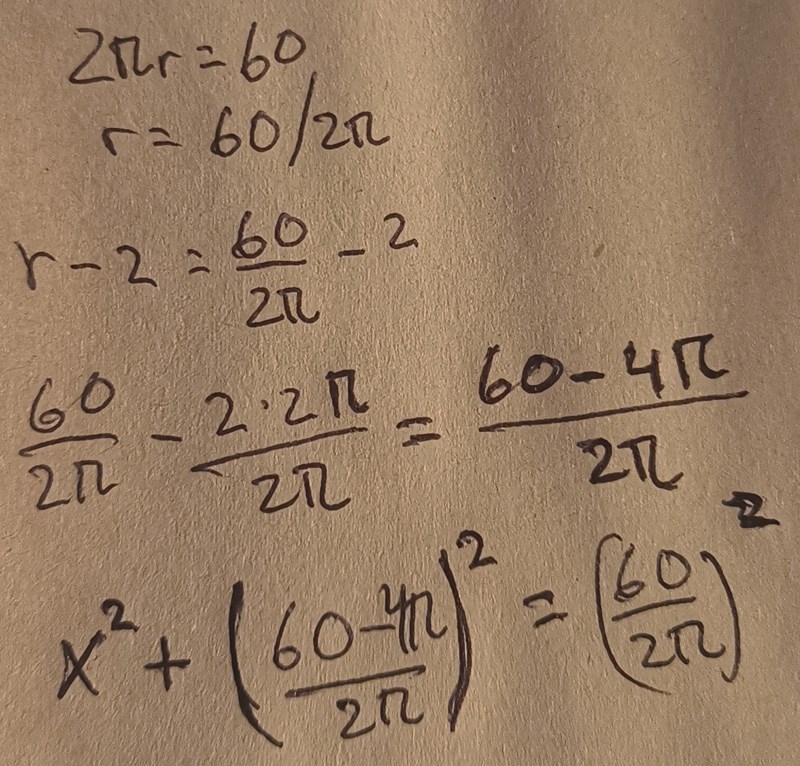 2πr = 60
r = 60/2π
r - 2 = 60/2π - 2
60/2π - 2·2π/2π = 60-4π/2π
x² + (60-4π/2π)² = (60/2π)²